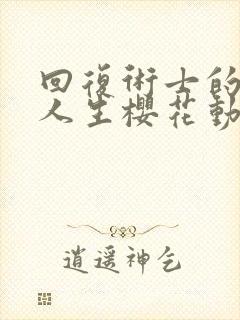 回復術士的
人生櫻花動
逍遥神乞